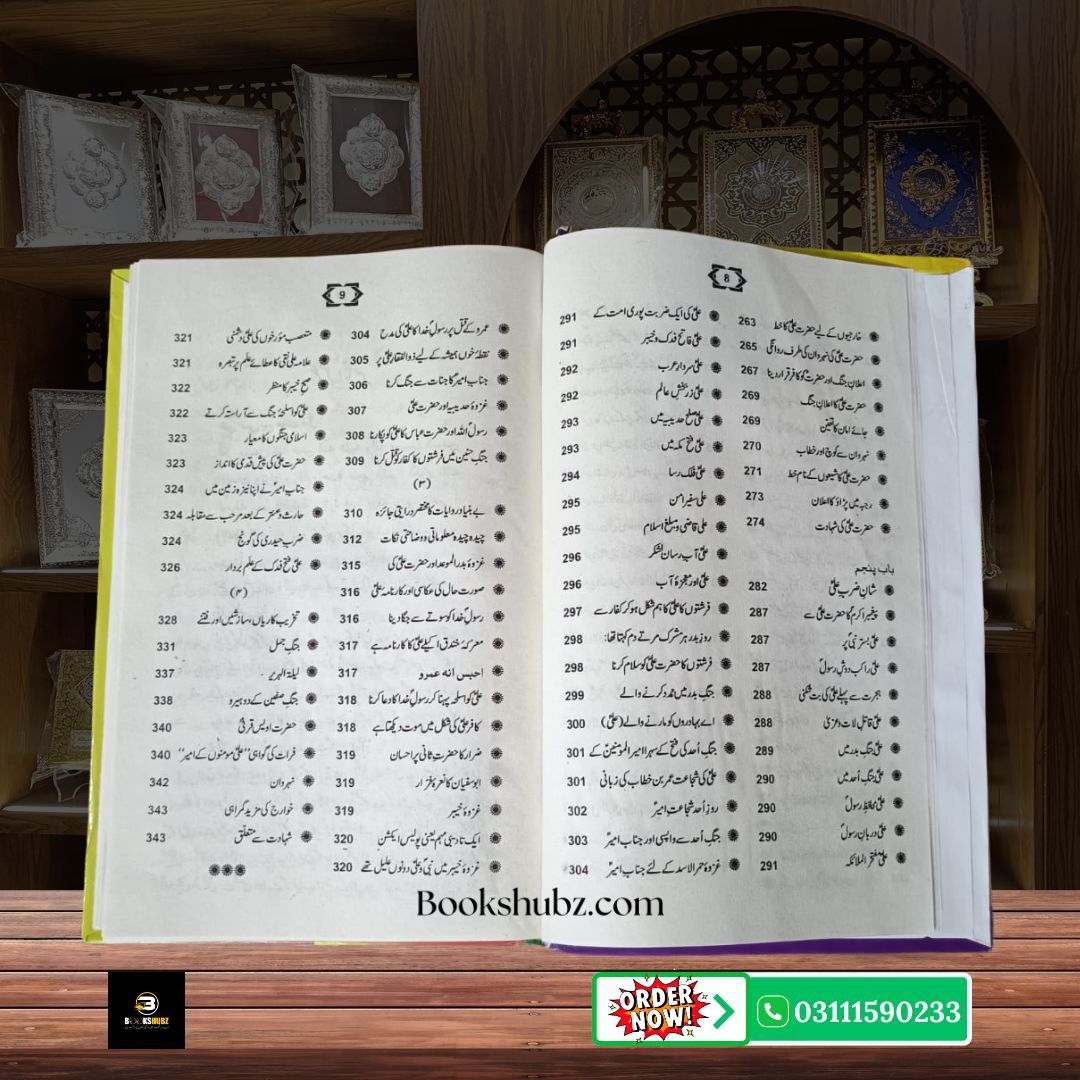 8
خارجیوں کے لیے حضرت علیؑ کا خط 263
حضرت علیؑ کی نہروان کی طرف روانگی 265
اعلانِ جنگ اور حضرتؑ کو کافر قرار دینا 267
حضرت علیؑ کا اعلانِ جنگ 269
جائے امان کا تعین 269
نہروان سے کوچ اور خطاب 270
حضرت علیؑ کا شیعوں کے نام خط 271
رحبہ میں پڑاؤ کا اعلان 273
حضرت علیؑ کی شہادت 274
باب پنجم
شانِ ضربِ علیؑ 282
پیغمبر اکرمؐ کا حضرت علیؑ سے 287
علیؑ بسترِ نبیؐ پر 287
علیؑ راکبِ دوشِ رسولؐ 287
ہجرت سے پہلے علیؑ کی بت شکنی 288
علیؑ قاتلِ لات وعزیٰ 288
علیؑ جنگِ بدر میں 289
علیؑ جنگِ اُحد میں 290
علیؑ محافظِ رسولؐ 290
علیؑ دربانِ رسولؐ 290
علیؑ مفخر الملائکہ 291
علیؑ کی ایک ضربت پوری امت کے 291
علیؑ فاتح فدک و خیبر 291
علیؑ سردارِ عرب 292
علیؑ زر بخشِ عالم 292
علیؑ صلح حدیبیہ میں 293
علیؑ فتح مکہ میں 293
علیؑ فلک رسا 294
علی سفیرِ امن 295
علیؑ قاضی و مبلغِ اسلام 295
علیؑ آب رسانِ لشکر 296
علیؑ اور معجزۂ آب 296
فرشتوں کا علیؑ کا ہم شکل ہو کر کفار سے 297
روزِ بدر ہر مشرک مرتے دم کہتا تھا: 298
فرشتوں کا حضرت علیؑ کو سلام کرنا 298
جنگِ بدر میں مدد کرنے والے 299
اے بہادروں کو مارنے والے (علیؑ) 300
جنگِ اُحد کی فتح کے سہرا امیر المومنینؑ کے 301
علیؑ کی شجاعت عمر بن خطاب کی زبانی 301
روزِ اُحد شجاعتِ امیرؑ 302
جنگِ اُحد سے واپسی اور جنابِ امیرؑ 303
غزوۂ حمراالاسد کے لئے جنابِ امیرؑ 304
9
عمرو کے قتل پر رسولِ خداؐ کا علیؑ کی مدح 304
نقطۂ خوں ہمیشہ کے لیے ذوالفقارِ علیؑ پر 305
جنابِ امیرؑ کا جنات سے جنگ کرنا 306
غزوۂ حدیبیہ اور حضرت علیؑ 307
رسولُ اللہ اور حضرت عباس کا علیؑ کو پکارنا 308
جنگِ حنین میں فرشتوں کا کفار کو قتل کرنا 309
(۳)
بے بنیاد روایات کا مختصر درایتی جائزہ 310
چیدہ چیدہ معلوماتی و وضاحتی نکات 312
غزوۂ بدر الموعد اور حضرت علیؑ کی 315
صورتِ حال کی عکاسی اور کارنامۂ علیؑ 316
رسولِؐ خدا کو سوتے سے جگا دینا 316
معرکۂ خندق اکیلے علیؑ کا کارنامہ ہے 317
احبس انه عمرو 317
علیؑ کو اسلحہ پہنا کر رسولِؐ خدا کا دعا کرنا 318
کافر علیؑ کی شکل میں موت دیکھتا ہے 318
ضرار کا حضرتِ ثانی پر احسان 319
ابوسفیان کا نعرہ و فرار 319
غزوۂ خیبر 319
ایک تادیبی مہم یعنی پولیس ایکشن 320
غزوۂ خیبر میں نبیؐ و علیؑ دونوں علیل تھے 320
متعصب مؤرخوں کی علیؑ دشمنی 321
علامہ علی نقی کا عطائے علم پر تبصرہ 321
صبحِ خیبر کا منظر 322
علیؑ کو اسلحۂ جنگ سے آراستہ کرتے 322
اسلامی جنگوں کا معیار 323
حضرت علیؑ کی پیش قدمی کا انداز 323
جنابِ امیرؑ نے اپنا نیزہ زمین میں 324
حارث و عنتر کے بعد مرحب سے مقابلہ 324
ضربِ حیدری کی گونج 324
علیؑ فتح فدک کے علم بردار 326
(۴)
تخریب کاریاں، سازشیں اور فتنے 328
جنگِ جمل 331
لیلۃ الہریر 337
جنگِ صفین کے دو ہیرو 338
حضرت اویس قرنیؓ 340
فرات کی گواہی "علیؑ مومنوں کے امیر" 340
نہروان 342
خوارج کی مزید گمراہی 343
شہادت سے متعلق 343
Bookshubz.com
BOOKSHUBZ
ORDER NOW!
03111590233